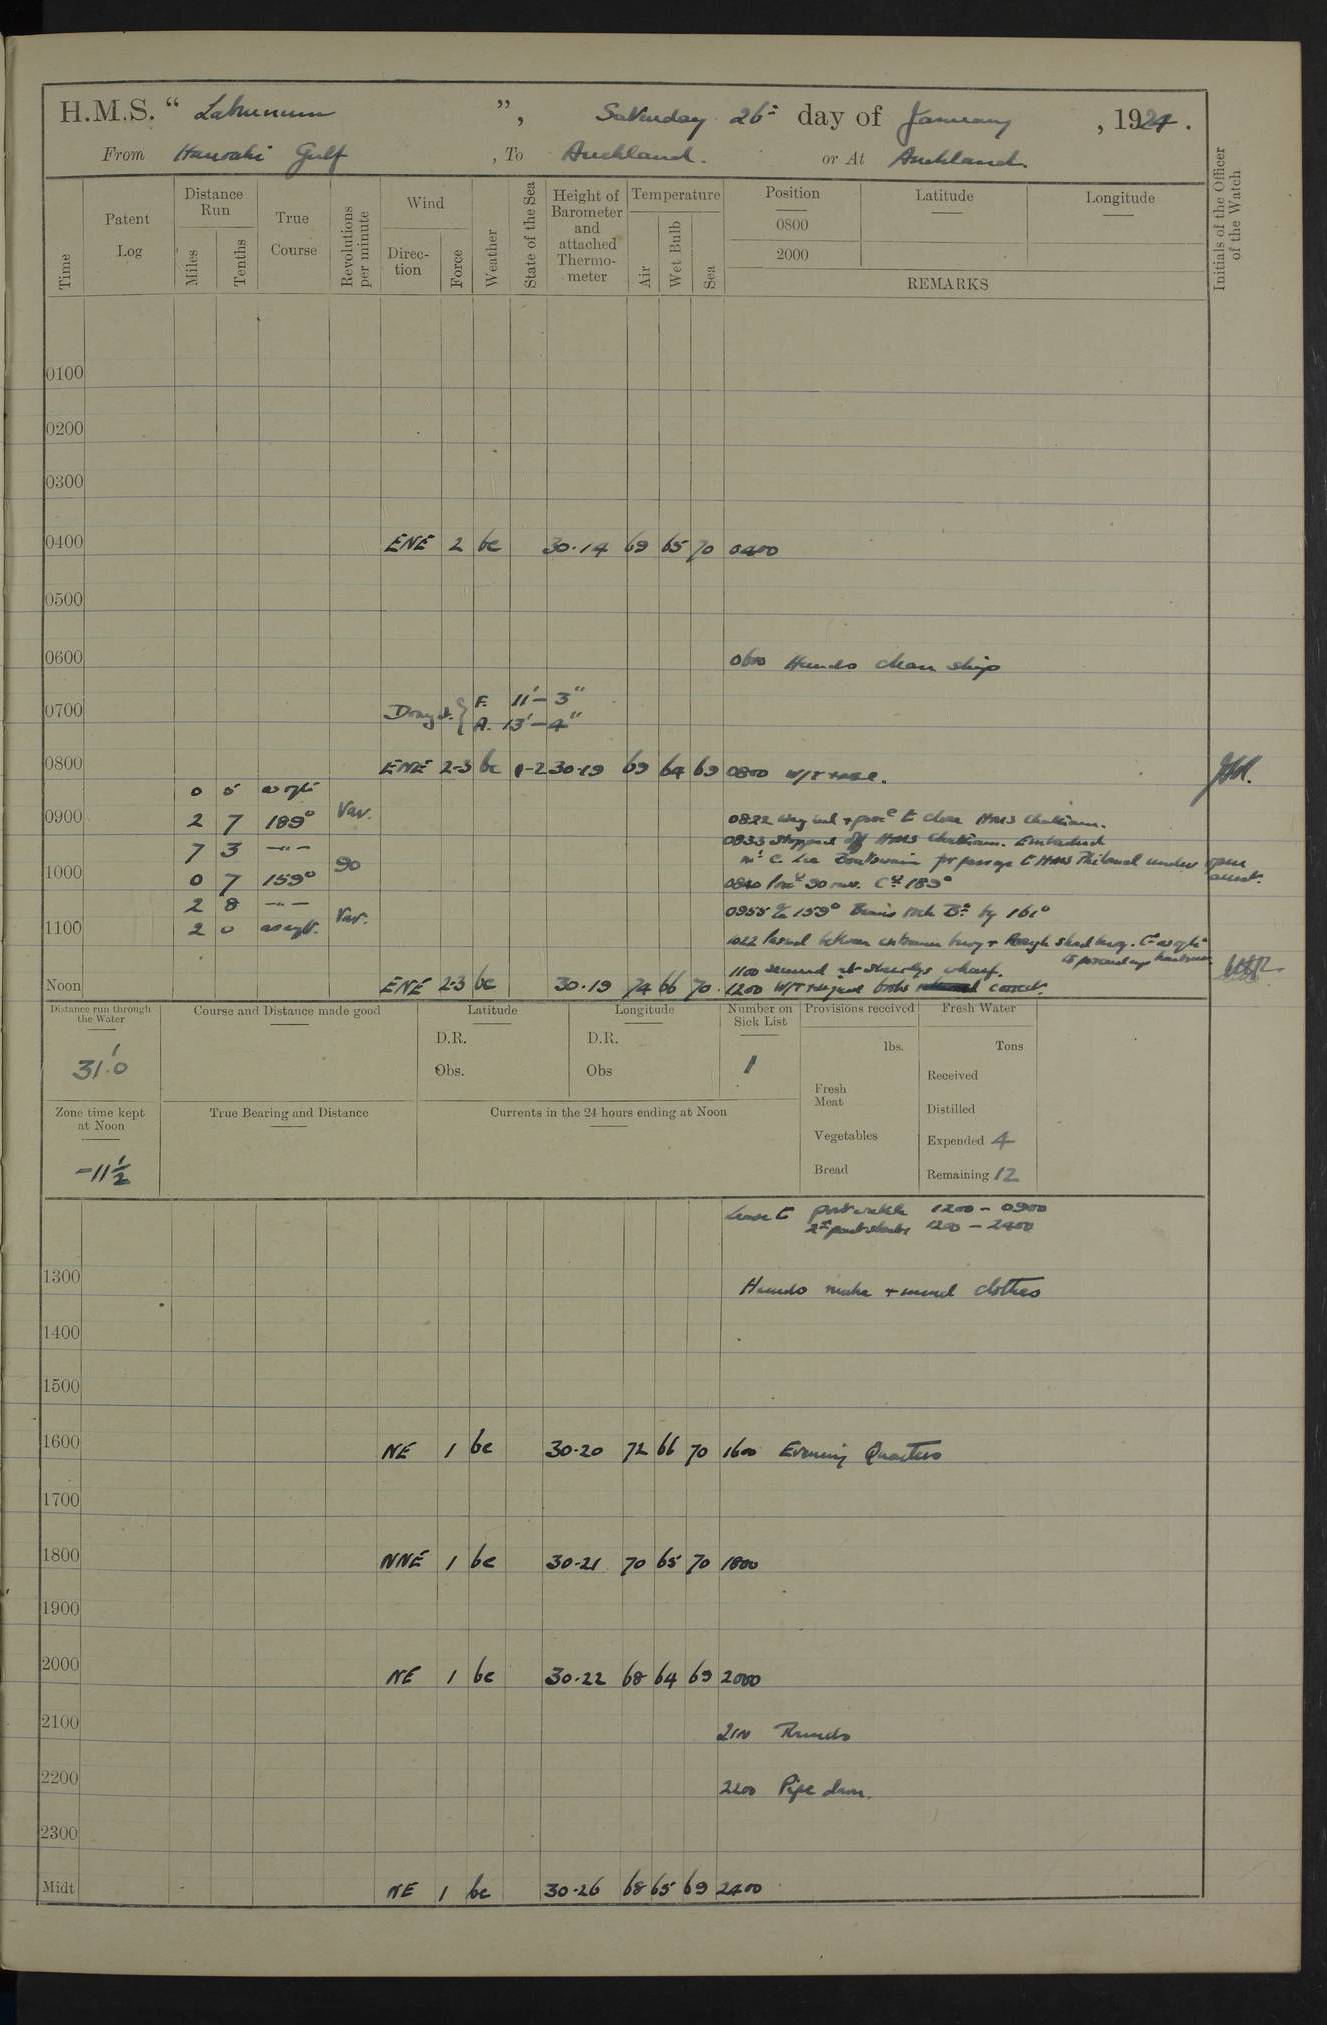 H.M.S. “ Laburnum ”, Saturday 26th day of January , 1924 .
From Hauraki Gulf , To Auckland. or At Auckland.
Time
Patent Log
Distance Run
Miles
Tenths
True Course
Revolutions per minute
Wind
Direc-tion
Force
Weather
State of the Sea
Height of Barometer and attached Thermo-meter
Temperature
Air
Wet Bulb
Sea
Position
0800
2000
Latitude
Longitude
REMARKS
Initials of the Officer of the Watch
0100
0200
0300
0400 ENE 2 bc 30.14 69 65 70 0400
0500
0600 0600 Hands clean ship
0700 Draught { F. 11' - 3"
A. 13' - 4"
0800 ENE 2-3 bc 1-2 30.19 69 64 69 0800 W/T
0 5 as reqte
0900 2 7 189° Var. 0822 weighed & proc'd to close HMS Chatham.
0833 stopped off HMS Chatham. Embarked
7 3 -"- Mr C. Lee Boatswain for passage to HMS Philomel under open arrest.
1000 0 7 159° 90 0840 Proc'd 90 revs. Co 189°
2 8 -"- 0955 a/c 159° Beans rock Bn by 161°
1100 2 0 as reqte. Var. 1022 Passed between entrance buoy & Rough shoal buoy. Co as reqte
to proceed up harbour
1100 secured at Sheerlegs wharf.
Noon ENE 2-3 bc 30.19 74 66 70 1200 W/T books correct.
Distance run through the Water
31.0
Course and Distance made good
Latitude
D.R.
Obs.
Longitude
D.R.
Obs
Number on Sick List
1
Provisions received
lbs.
Fresh Meat
Vegetables
Bread
Fresh Water
Tons
Received
Distilled
Expended 4
Remaining 12
Zone time kept at Noon
-11½
True Bearing and Distance
Currents in the 24 hours ending at Noon
Leave to port watch 1200 - 0900
2nd part starbd 1200 - 2400
1300 Hands make & mend clothes
1400
1500
1600 NE 1 bc 30.20 72 66 70 1600 Evening Quarters
1700
1800 NNE 1 bc 30.21 70 65 70 1800
1900
2000 NE 1 bc 30.22 68 64 69 2000
2100 2100 Rounds
2200 2200 Pipe down.
2300
Midt NE 1 bc 30.26 68 65 69 2400